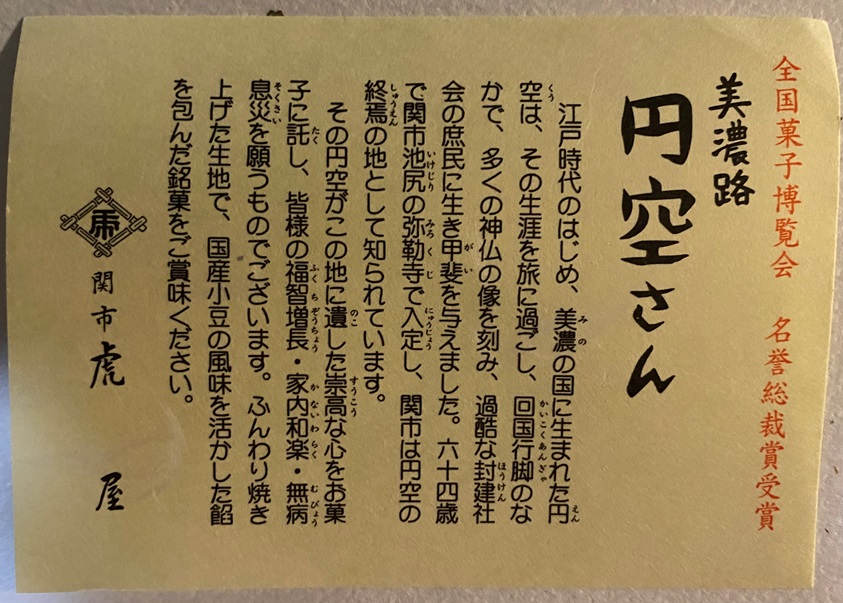 全国菓子博覧会 名誉総裁賞受賞
美濃路
円空さん
江戸時代のはじめ、美濃の国に生まれた円
空は、その生涯を旅に過ごし、回国行脚のな
かで、多くの神仏の像を刻み、過酷な封建社
会の庶民に生き甲斐を与えました。六十四歳
で関市池尻の弥勒寺で入定し、関市は円空の
終焉の地として知られています。
その円空がこの地に遺した崇高な心をお菓
子に託し、皆様の福智増長・家内和楽・無病
息災を願うものでございます。ふんわり焼き
上げた生地で、国産小豆の風味を活かした餡
を包んだ銘菓をご賞味ください。
虎
関市 虎屋